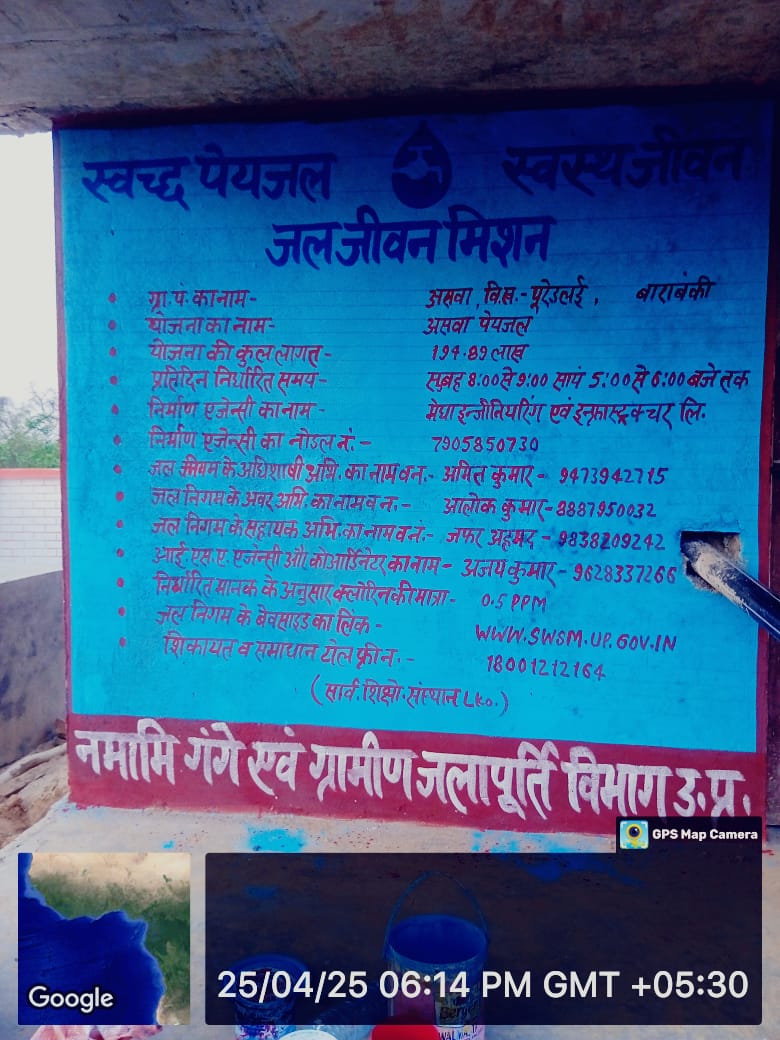 स्वच्छ पेयजल स्वस्थ जीवन
जल जीवन मिशन
ग्रा.पं. का नाम- असवा, वि.ख.- पूरेडलई, बाराबंकी
योजना का नाम- असवा पेयजल
योजना की कुल लागत- 194.89 लाख
प्रतिदिन निर्धारित समय- सुबह 8:00 से 9:00 सायं 5:00 से 6:00 बजे तक
निर्माण एजेन्सी का नाम- मेघा इन्जीनियरिंग एवं इन्फ्रास्ट्रक्चर लि.
निर्माण एजेन्सी का नोडल नं.- 7905850730
जल निगम के अधिशाषी अभि. का नाम व न.- अमित कुमार- 9473942715
जल निगम के अवर अभि. का नाम व न.- आलोक कुमार- 8887950032
जल निगम के सहायक अभि. का नाम व नं.- जफर अहमद- 9838209242
आई एस.ए. एजेन्सी और कोआर्डिनेटर का नाम- अजय कुमार- 9628337266
निर्धारित मानक के अनुसार क्लोरिन की मात्रा- 0.5 PPM
जल निगम के बेवसाइड का लिंक- WWW.SWSM.UP.GOV.IN
शिकायत व समाधान टोल फ्री न.- 18001212164
(सार्व. शिक्षो. संस्थान LKO.)
नमामि गंगे एवं ग्रामीण जलापूर्ति विभाग उ.प्र.
GPS Map Camera
Google
25/04/25 06:14 PM GMT +05:30